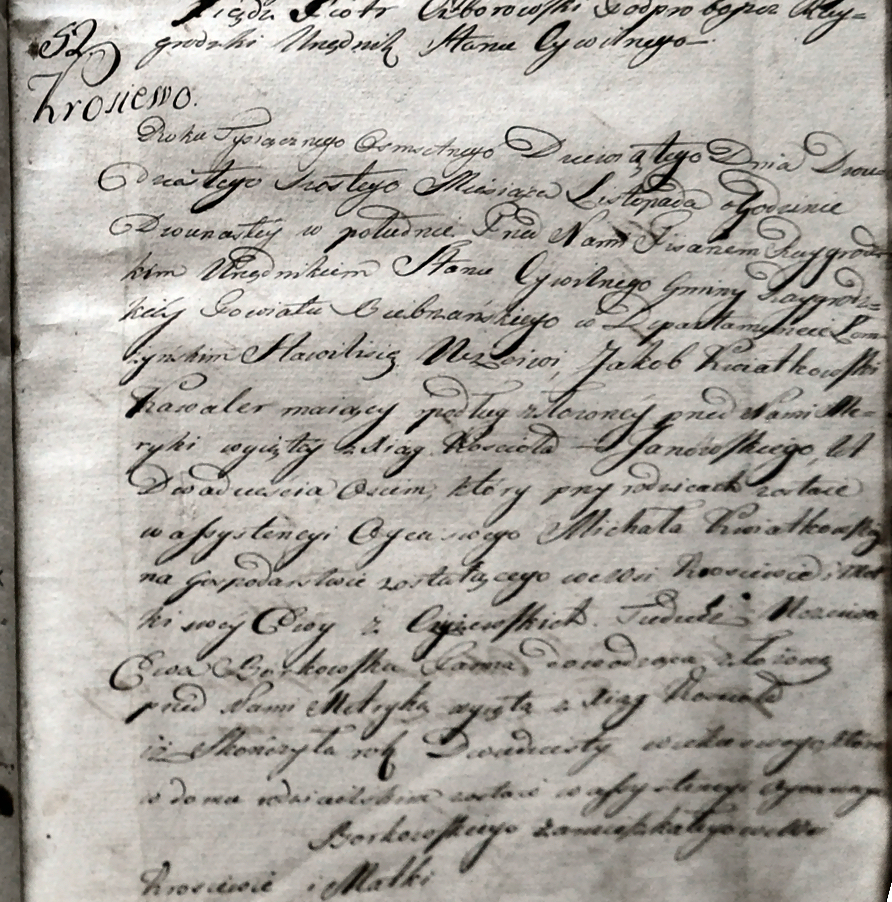 Xiądz Piotr Ciborowski Podproboszcz Ray=
grodzki Urzędnik Stanu Cywilnego
52.
Krosiewo.
Roku Tysiącznego Osmsetnego Dziewiątego Dnia Dwu
dziestego szostego Miesiąca Listopada o Godzinie
Dwunastey w południe Przed Nami Pisarzem Raygrodz
kim Urzędnikiem Stanu Cywilnego Gminy Raygrodz=
kiey Powiatu Biebrzańskiego w Departamencie Łom
żyńskim Stawili się Uczciwi, Jakob Kwiatkowski
Kawaler maiący podług złożoney przed Nami Me=
tryki wyciętey z xiąg Kościoła Janowskiego, lat
Dwadziescia Osm, który przy rodzicach zostaie
w assystencyi Oyca swego Michała Kwiatkowskieg
na gospodarstwie zostaiącego we Wsi Krosiewie i Mat
ki swey Ewy z Ciżewskich. Tudzież Uczciwa
Ewa Borkowska Panna dowodząca złożoną
przed Nami Metryką wyiętą z Xiąg Kościoła
iż Skończyła rok Dwudziesty wieku swego, która
w domu rodzicielskim zostaie w assystencyi Oyca swego
Borkowskiego zamieszkałego we Wsi
Krosiewie i Matki